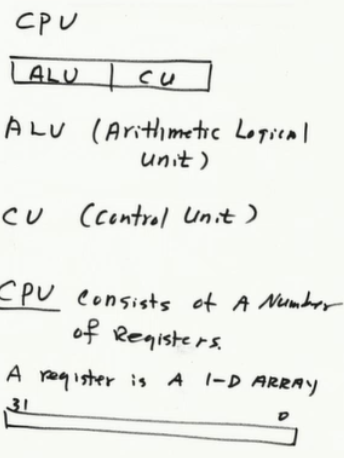 CPU
ALU | CU
ALU (Arithmetic Logical
Unit)
CU (Control Unit)
CPU Consists of A Number
of Registers.
A register is A 1-D ARRAY
31 0